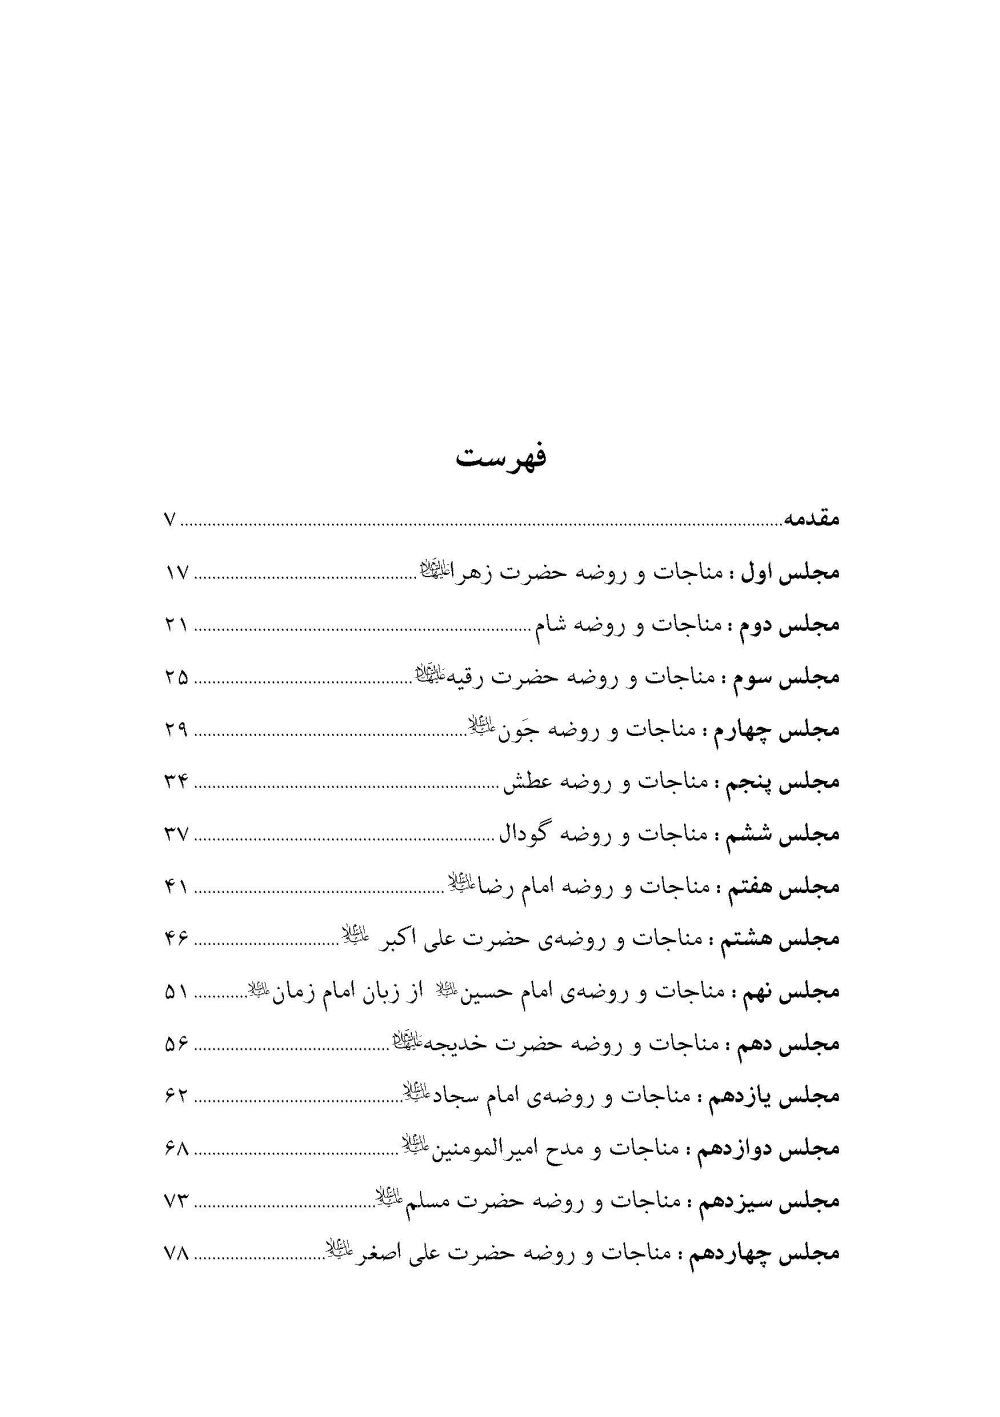 فهرست
مقدمه ........ ۷
مجلس اول : مناجات و روضه حضرت زهرا علیهاالسلام ........ ۱۷
مجلس دوم : مناجات و روضه شام ........ ۲۱
مجلس سوم : مناجات و روضه حضرت رقیه علیهاالسلام ........ ۲۵
مجلس چهارم : مناجات و روضه جَون علیه‌السلام ........ ۲۹
مجلس پنجم : مناجات و روضه عطش ........ ۳۴
مجلس ششم : مناجات و روضه گودال ........ ۳۷
مجلس هفتم : مناجات و روضه امام رضا علیه‌السلام ........ ۴۱
مجلس هشتم : مناجات و روضه‌ی حضرت علی اکبر علیه‌السلام ........ ۴۶
مجلس نهم : مناجات و روضه‌ی امام حسین علیه‌السلام از زبان امام زمان علیه‌السلام ........ ۵۱
مجلس دهم : مناجات و روضه حضرت خدیجه علیهاالسلام ........ ۵۶
مجلس یازدهم : مناجات و روضه‌ی امام سجاد علیه‌السلام ........ ۶۲
مجلس دوازدهم : مناجات و مدح امیرالمومنین علیه‌السلام ........ ۶۸
مجلس سیزدهم : مناجات و روضه حضرت مسلم علیه‌السلام ........ ۷۳
مجلس چهاردهم : مناجات و روضه حضرت علی اصغر علیه‌السلام ........ ۷۸